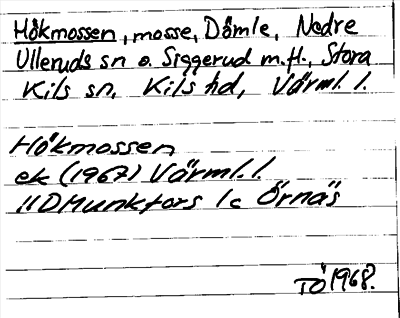 Hökmossen, mosse, Dömle, Nedre
Ulleruds sn o. Siggerud m.fl., Stora
Kils sn, Kils hd, Värml. l.
Hökmossen
ek (1967) Värml. l.
11D Munkfors 1c Örnäs
TÖ 1968.